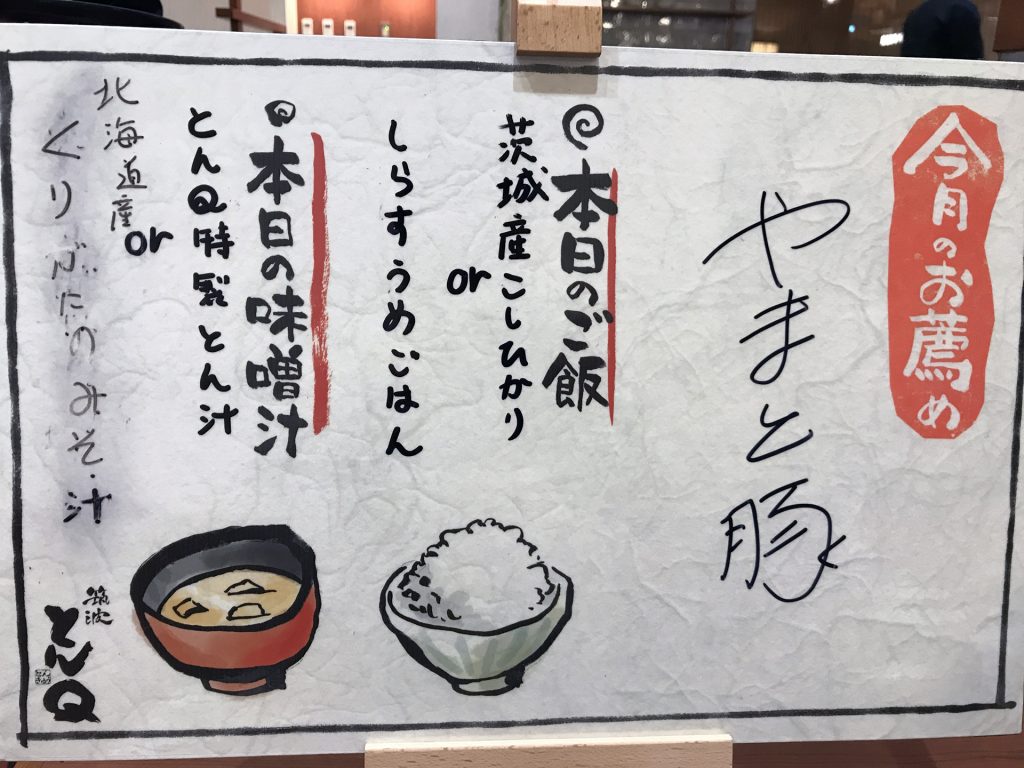 今月のお薦め
やまと豚
本日のご飯
茨城産こしひかり
or
しらすうめごはん
本日の味噌汁
とんQ特製とん汁
or
北海道産
ぐりぶたのみそ汁
筑波
とんQ